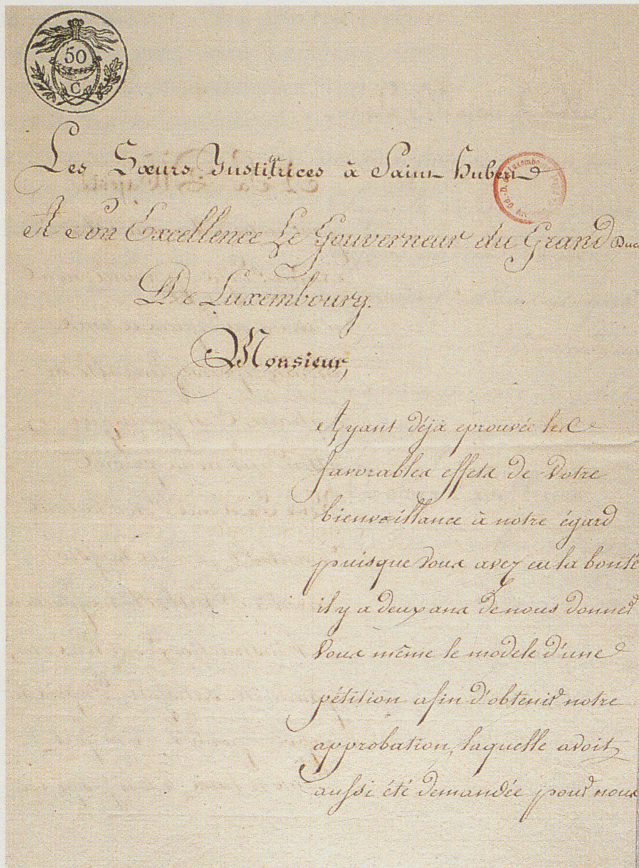 50
C
Les Sœurs Institrices à Saint-Hubert
A Son Excellence Le Gouverneur du Grand Duc
De Luxembourg.
Monsieur,
Ayant déjà eprouvée les
favorables effets de Votre
bienveillance à notre égard
puisque vous avez eu la bonté
il y a deux ans de nous donner
Vous même le modele d'une
pétition afin d'obtenir notre
approbation, laquelle avoit
aussi été demandée pour nous